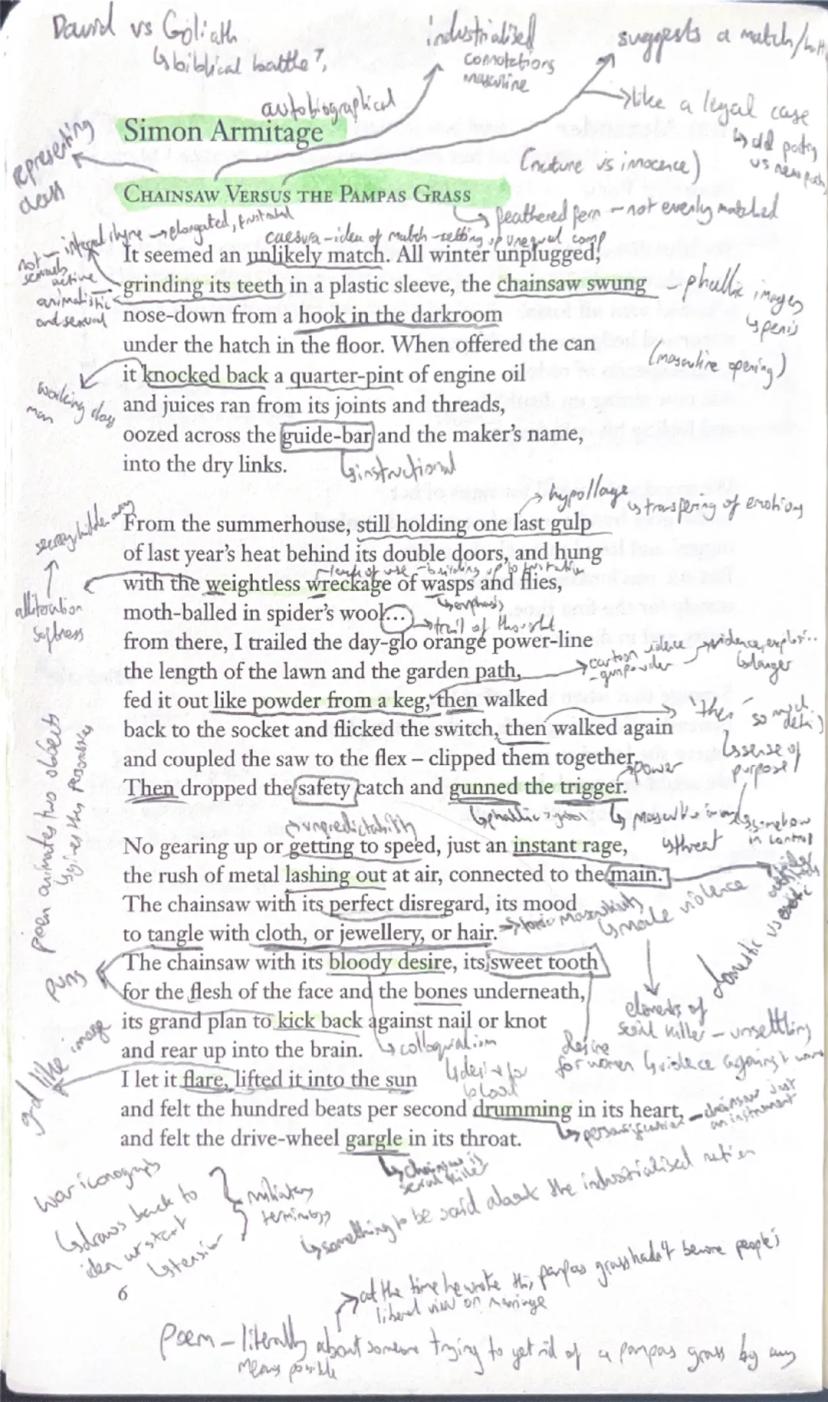 David vs Goliath
↳biblical battle?
industrialised
connotations
masculine
suggests a match/
→like a legal case
↳old poetry
vs new
autobiographical
Simon Armitage
representing
death
(nature vs innocence)
CHAINSAW VERSUS THE PAMPAS GRASS
↳feathered fern – not evenly matched
internal rhyme → elongated,
caesura – idea of match – setting up unequal
not
active
animalistic
and sexual
It seemed an unlikely match. All winter unplugged,
grinding its teeth in a plastic sleeve, the chainsaw swung
– phallic images
↳penis
nose-down from a hook in the darkroom
under the hatch in the floor. When offered the can
(masculine opening)
it knocked back a quarter-pint of engine oil
working class
man
and juices ran from its joints and threads,
oozed across the guide-bar and the maker's name,
into the dry links.
↳instructional
→hypallage
↳transfering of emotions
From the summerhouse, still holding one last gulp
of last year's heat behind its double doors, and hung
lack of use – building up to frustration
with the weightless wreckage of wasps and flies,
alliteration
softness
↳emphasis
moth-balled in spider's wool…
→trail of thought
from there, I trailed the day-glo orange power-line
the length of the lawn and the garden path,
→cartoon violence
– gunpowder
↳danger
fed it out like powder from a keg, then walked
'Then'
so much
back to the socket and flicked the switch, then walked again
↳sense of
purpose
and coupled the saw to the flex – clipped them together.
power
Then dropped the safety catch and gunned the trigger.
↳threat
↳somehow
in control
poem animates two objects
↳gives them personality
unpredictability
No gearing up or getting to speed, just an instant rage,
the rush of metal lashing out at air, connected to the main.
The chainsaw with its perfect disregard, its mood
to tangle with cloth, or jewellery, or hair.
→toxic masculinity
↳male violence
domestic vs exotic
The chainsaw with its bloody desire, its sweet tooth
puns
for the flesh of the face and the bones underneath,
its grand plan to kick back against nail or knot
and rear up into the brain.
↳colloquialism
↳desire for
blood
desire
for women
elements of
serial killer – unsettling
↳violence against women
god like image
I let it flare, lifted it into the sun
and felt the hundred beats per second drumming in its heart,
↳personification
– chainsaw just
an instrument
and felt the drive-wheel gargle in its throat.
↳chainsaw is
serial killer
war iconography
↳draws back to
idea at start
↳tension
military
terminology
↳something to be said about the industrialised
6
→at the time he wrote this, pampas grass hadn't become people's
liberal view on marriage
Poem – literally about someone trying to get rid of a pampas grass by any
means possible